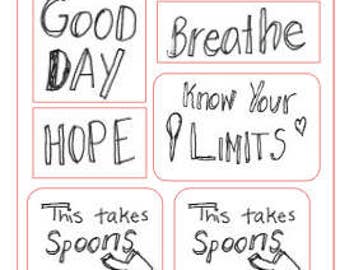 GOOD
DAY
Breathe
HOPE
Know Your
LIMITS
This takes
Spoons
This takes
Spoons